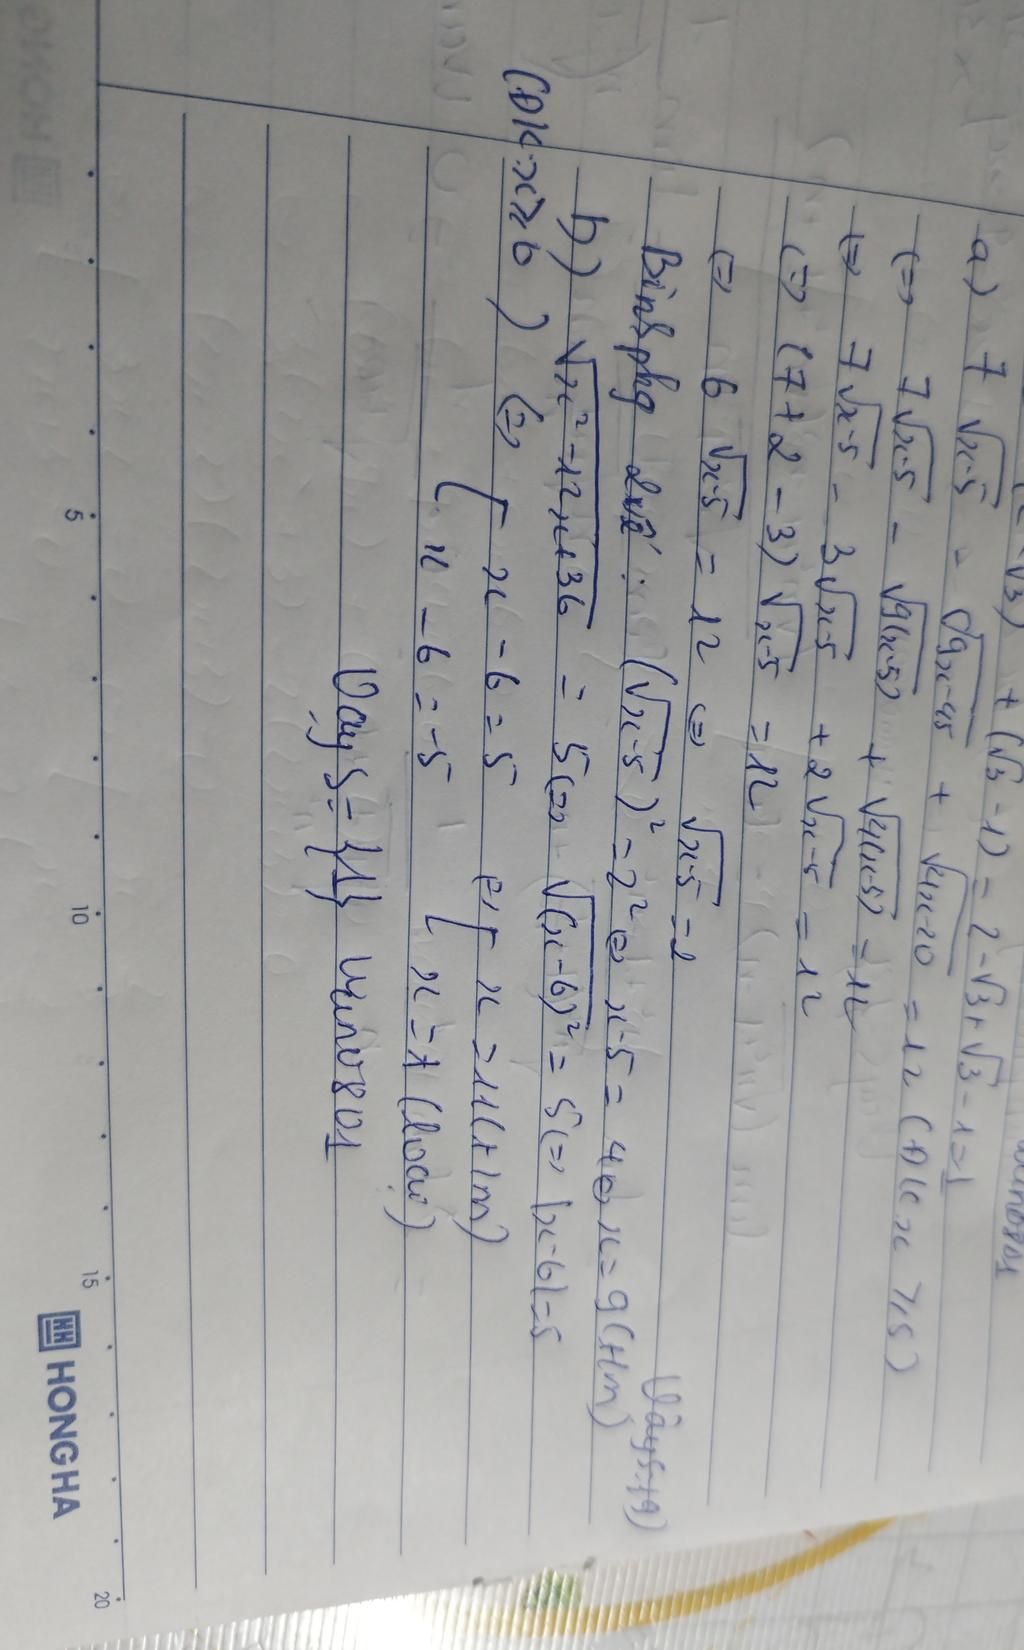 √3) + (√3 - 1) = 2 - √3 + √3 - 1 = 1
a) 7√x-5 - √9x-45 + √4x-20 = 12 (ĐK x ≥ 5)
(=) 7√x-5 - √9(x-5) + √4(x-5) = 12
(=) 7√x-5 - 3√x-5 + 2√x-5 = 12
(=) (7+2-3)√x-5 = 12
(=) 6√x-5 = 12 (=) √x-5 = 2
Bình phg 2 vế: (√x-5)² = 2² (=) x-5 = 4 (=) x = 9 (t/m)
Vậy S = {9}
b) √x²-12x+36 = 5 (=) √(x-6)² = 5 (=) |x-6| = 5
(ĐK x ≥ 6) (=) [ x - 6 = 5 (=) [ x = 11 (t/m)
[ x - 6 = -5 [ x = 1 (loại)
Vậy S = {11}
5
10
15
20
HONG HA